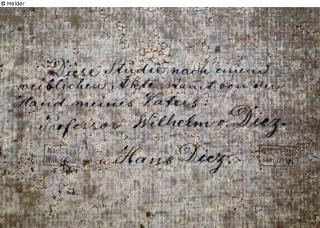 © Melder
Diese Studie nach einem
weiblichen Akte stamt von der
Hand meines Vaters:
Professor Wilhelm v. Diez.
Hans Diez.